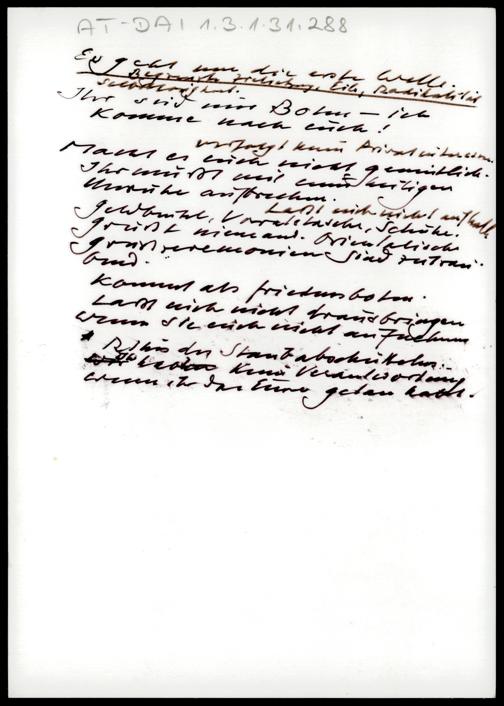 AT-DAI 1.3.1.31.288
Es geht um die erste Welle.
Radikalität
Ihr seid nur Boten – ich
komme nach euch!
verfolgt kein Privatinteresse.
Macht es euch nicht gemütlich.
Ihr müßt mit
Unruhe aufbrechen.
Laßt euch nicht aufhalten
Geldbeutel, Vorratstasche, Schuhe.
Grüßt niemand. Orientalische
Grußzeremonien sind zeitrau-
bend.
Kommt als Friedensboten.
Laßt euch nicht drausbringen
wenn sie euch nicht aufnehmen
Ritus des Staubabschüttelns.
Keine Verantwortung
wenn ihr das Eure getan habt.